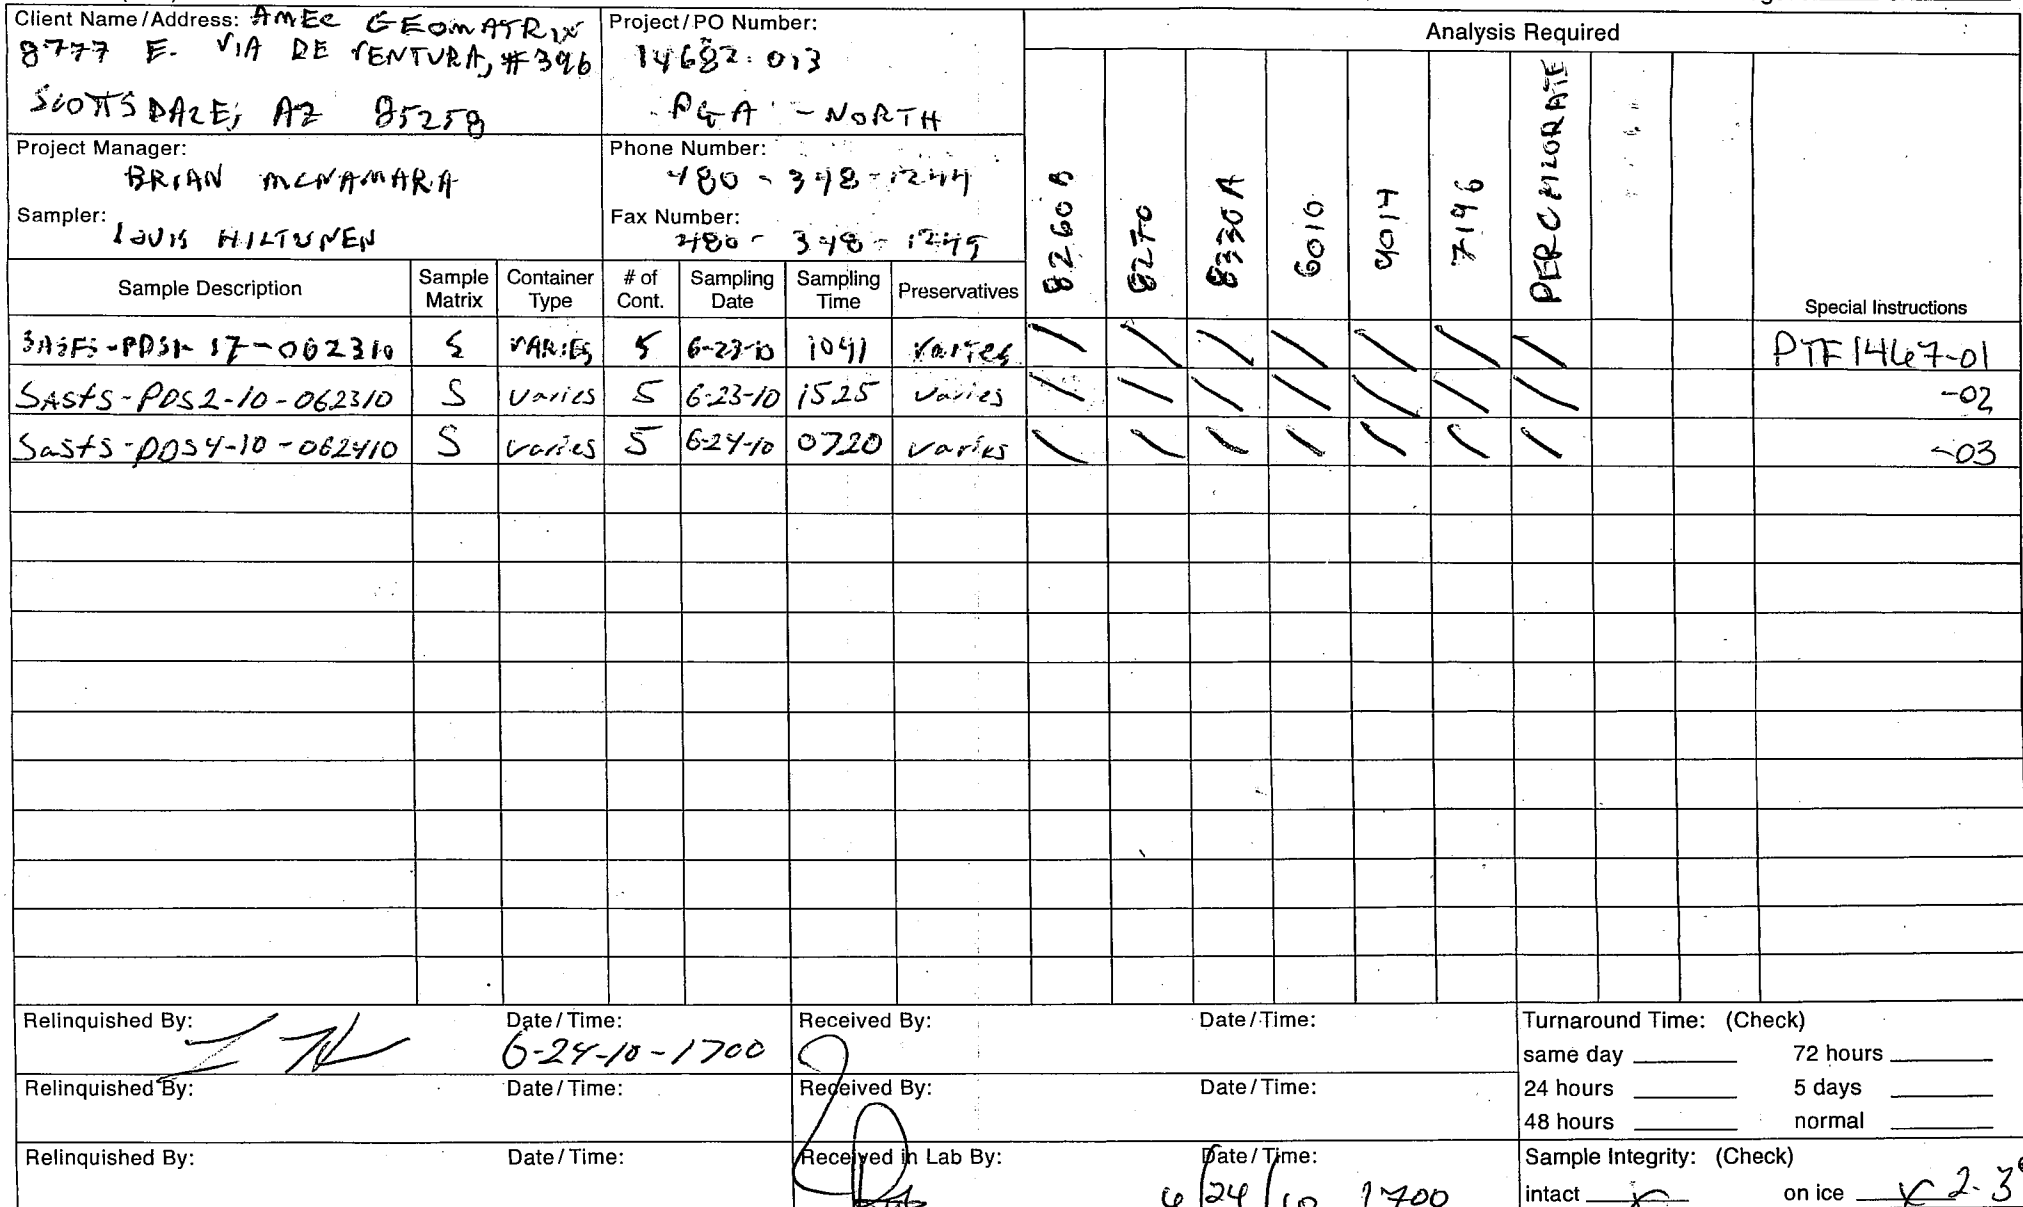 Client Name/Address: AMEC GEOMATRIX
8777 E. VIA DE VENTURA, #396
SCOTTSDALE, AZ 85258
Project/PO Number:
14682.013
PGA - NORTH
Project Manager:
BRIAN MCNAMARA
Phone Number:
480-348-1244
Sampler:
LOUIS HILTUNEN
Fax Number:
480-348-1245
Analysis Required
Sample Description Sample Matrix Container Type # of Cont. Sampling Date Sampling Time Preservatives 8260B 8270 8330A 6010 9014 7196 PERCHLORATE Special Instructions
SASFS-PDS1-17-062310 S VARIES 5 6-23-10 1041 varies PTF1467-01
SASFS-PDS2-10-062310 S varies 5 6-23-10 1525 varies -02
SASFS-PDS4-10-062410 S varies 5 6-24-10 0720 varies -03
Relinquished By: Date/Time: 6-24-10-1700 Received By: Date/Time:
Relinquished By: Date/Time: Received By: Date/Time:
Relinquished By: Date/Time: Received in Lab By: Date/Time: 6/24/10 1700
Turnaround Time: (Check)
same day 72 hours
24 hours 5 days
48 hours normal
Sample Integrity: (Check)
intact x on ice x 2.3°